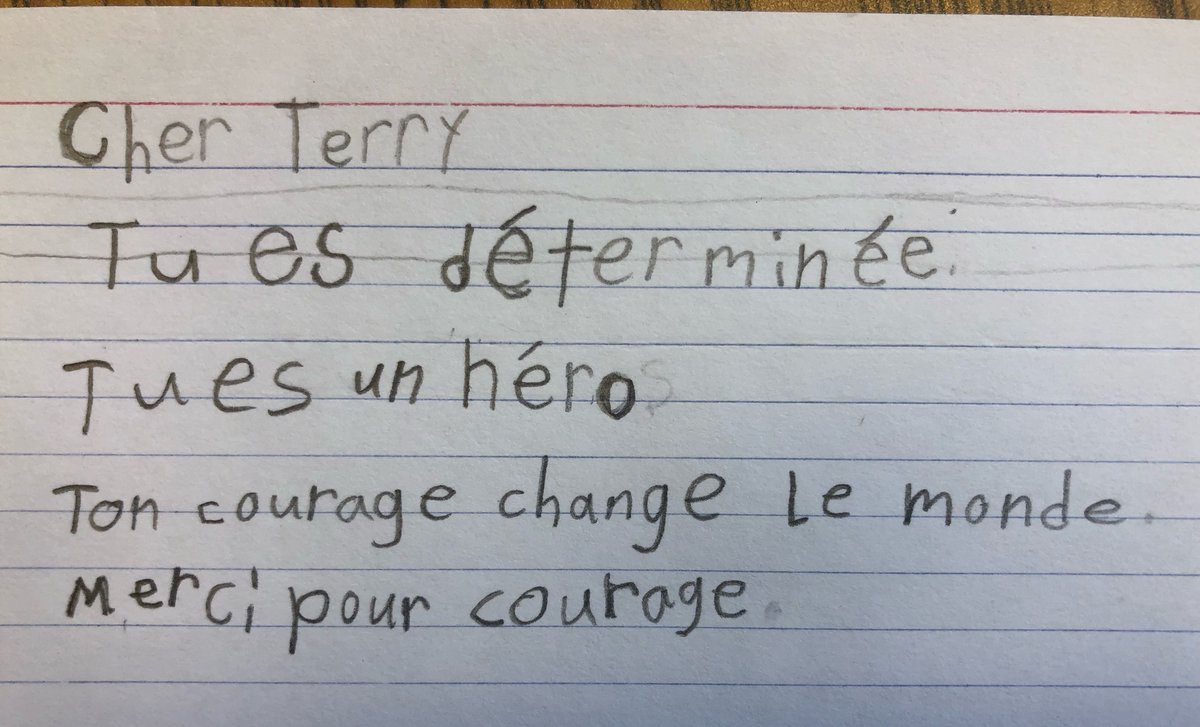 Cher Terry
Tu es déterminée.
Tu es un héros
Ton courage change le monde.
Merci pour courage.